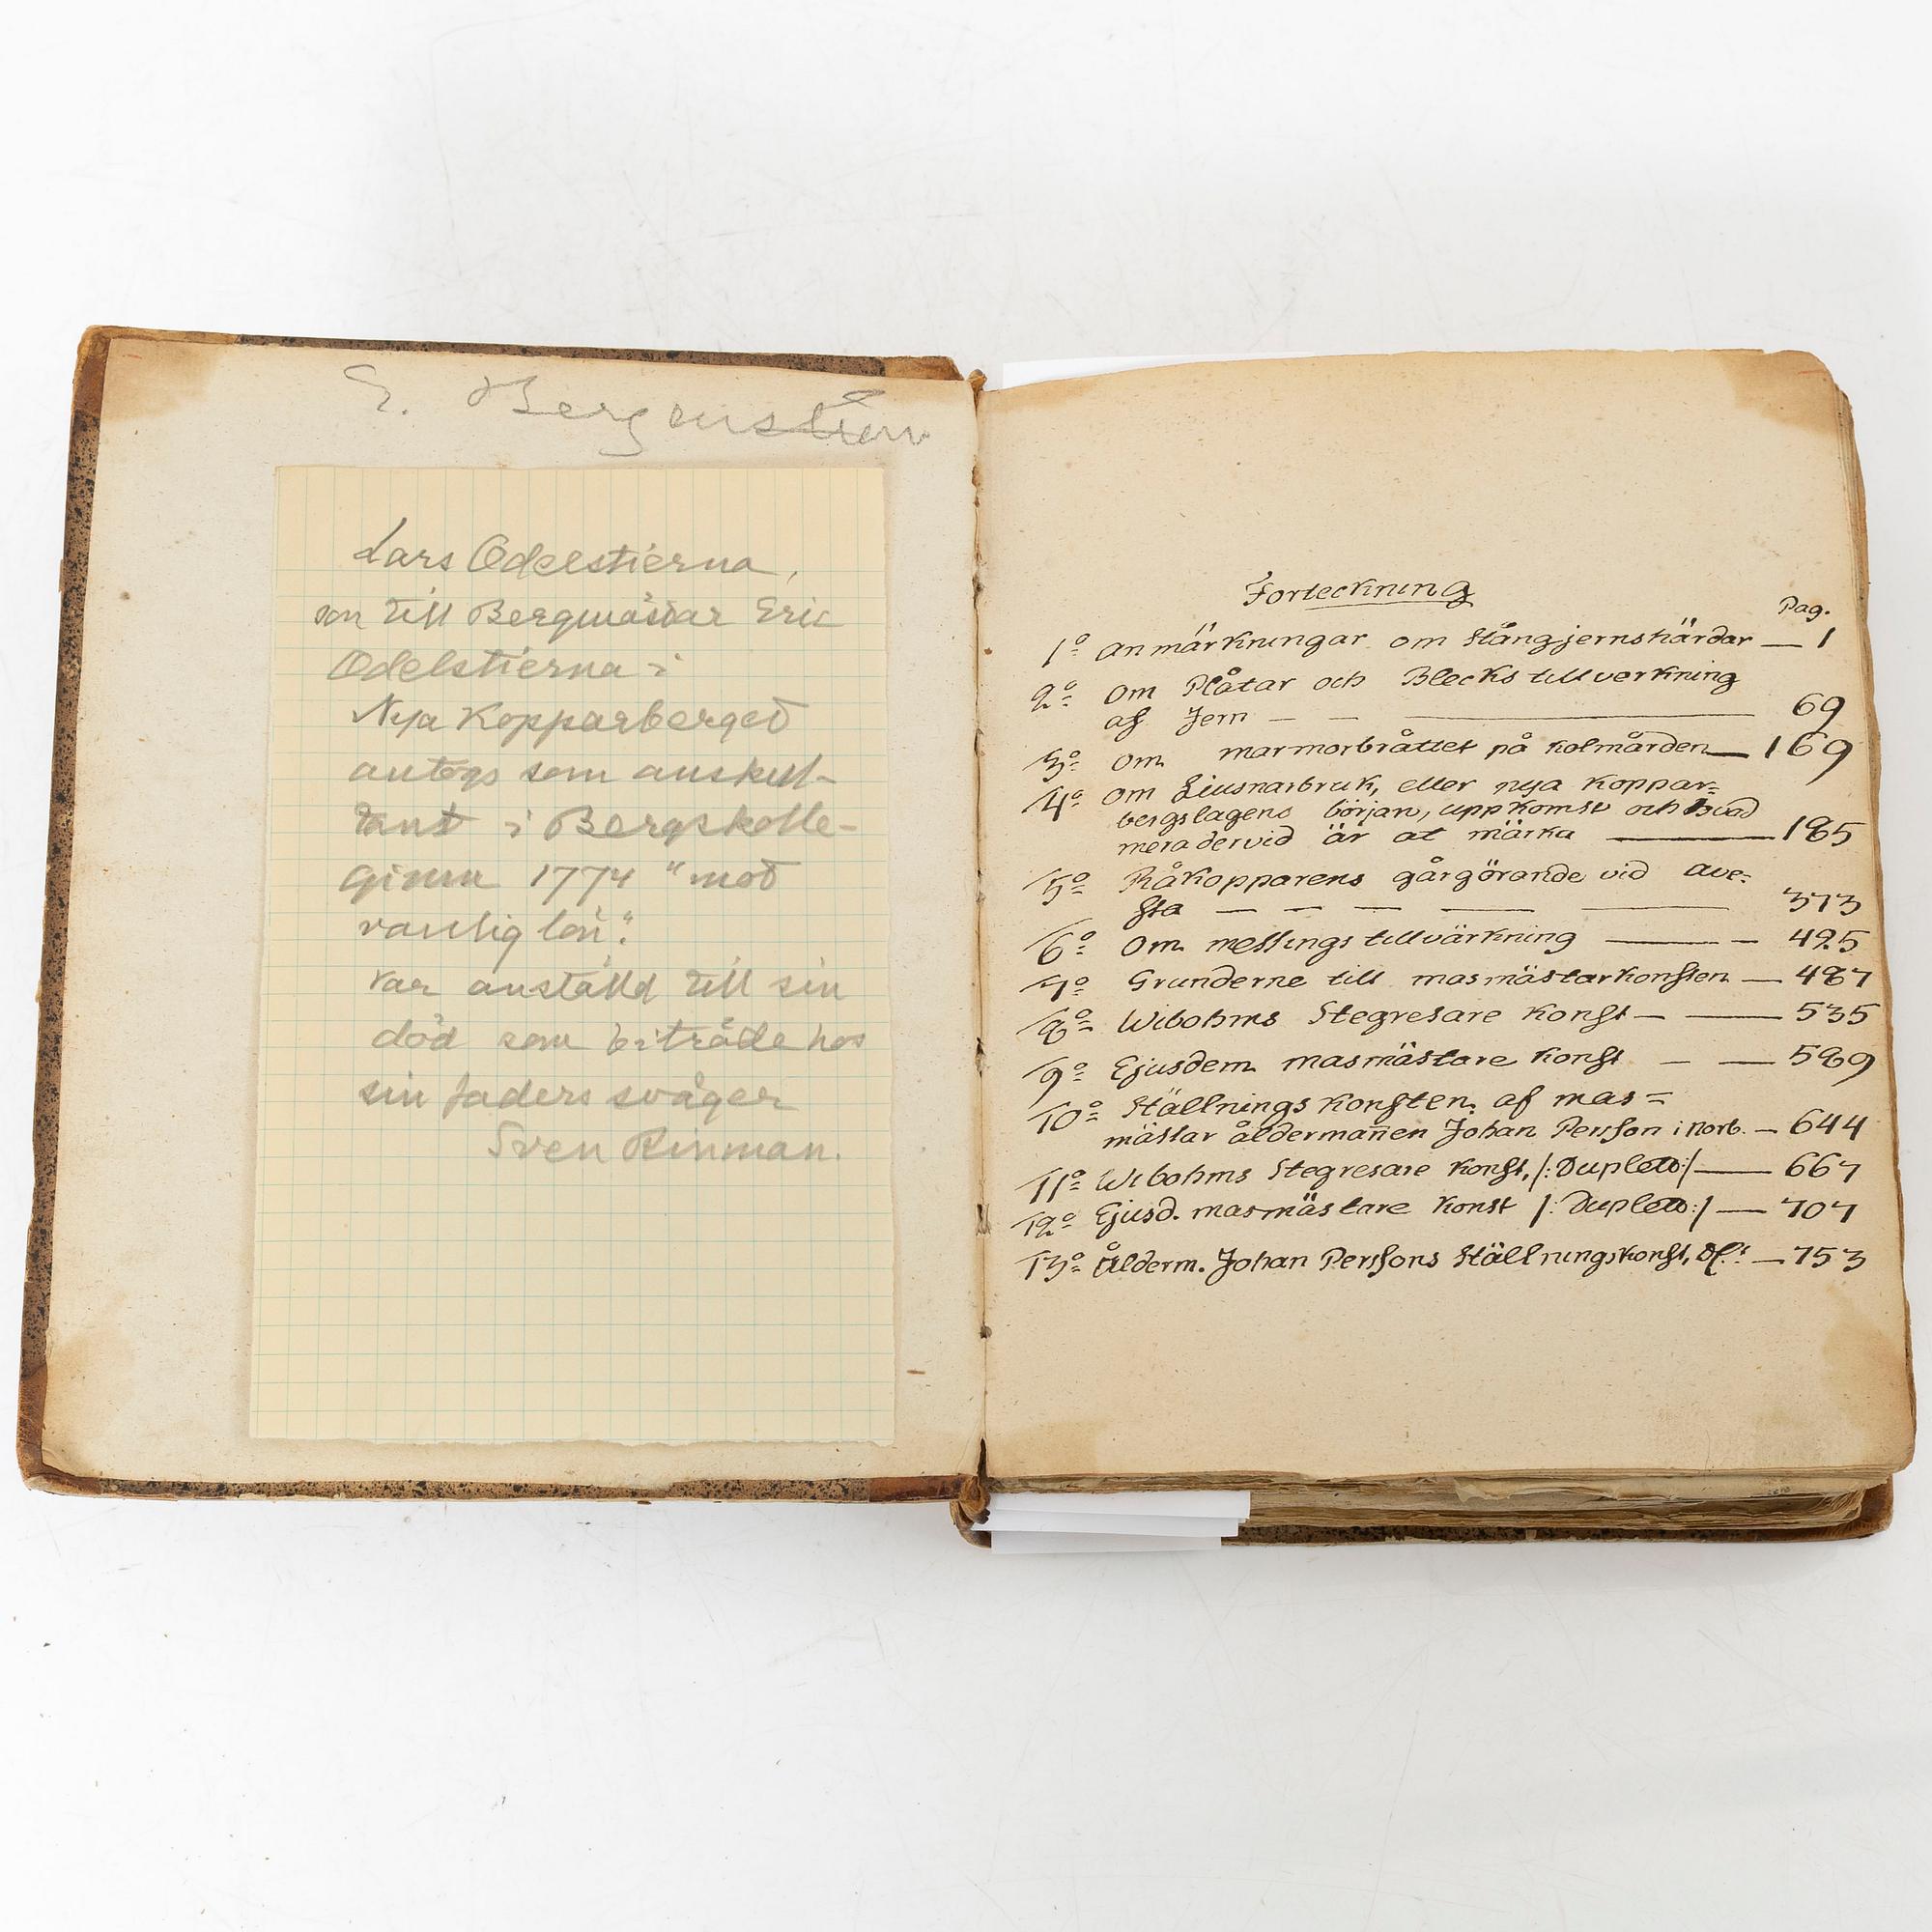 E. Bergenstiern
Lars Odelstierna,
son till Bergmästar Eric
Odelstierna i
Nya Kopparberget
antogs som auskul-
tant i Bergskolle-
gium 1774 "mot
vanlig lön".
var anställd till sin
död som biträde hos
sin faders svåger
Sven Rinman.
Förteckning
Pag.
1º anmärkningar om Stångjernshärdar — 1
2º om Plåtar och Blecks tillverkning
af Jern — — — 69
3º om marmorbråttet på Kolmården — 169
4º om Liusnarsbruk, eller nya Koppar=
bergslagens början, uppkomst och hvad
mera dervid är at märka — 185
5º Råkopparens gårgörande vid Ave=
sta — — — — — 373
6º om messings tillvärkning — — 425
7º Grunderne till masmästarkonsten — 487
8º Wibohms Stegresare Konst — — 535
9º Ejusdem masmästare Konst — — 589
10º Ställningskonsten af mas=
mästar åldermannen Johan Persson i Norb. — 644
11º Wibohms Stegresare Konst, /: Duplett:/ — 667
12º Ejusd. masmästare Konst /: Duplett:/ — 707
13º Ålderm. Johan Perssons Ställningskonst, — 753